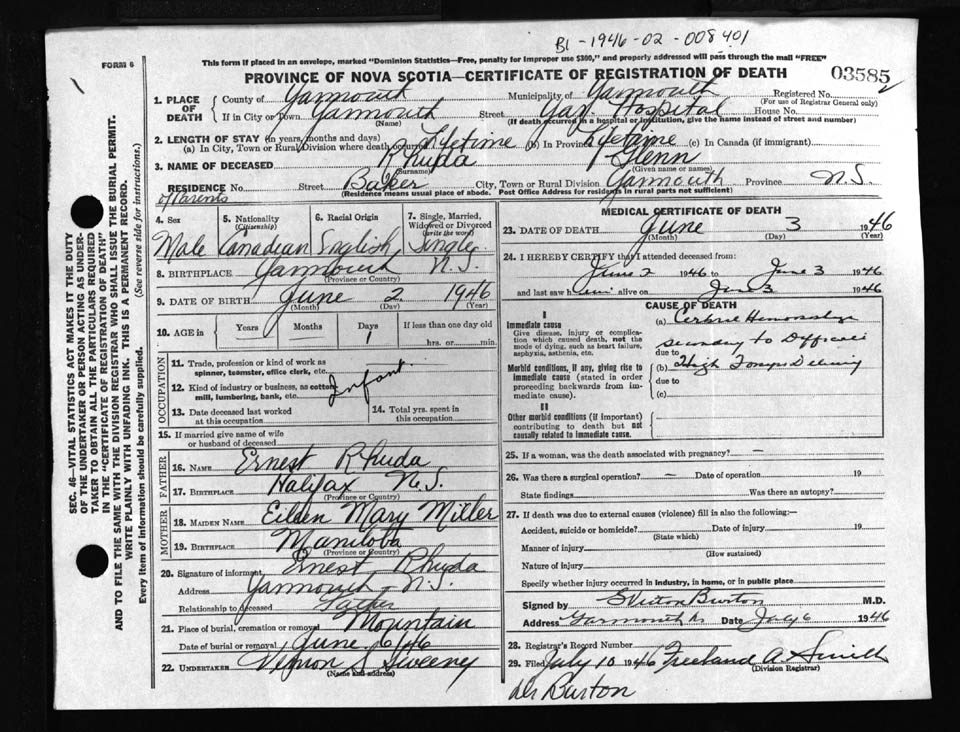 B1-1946-02-008401
This form if placed in an envelope, marked "Dominion Statistics—Free, penalty for improper use $300," and properly addressed will pass through the mail "FREE"
FORM 6
PROVINCE OF NOVA SCOTIA—CERTIFICATE OF REGISTRATION OF DEATH
03585 2
1. PLACE OF DEATH
County of Yarmouth Municipality of Yarmouth Registered No.
(For use of Registrar General only)
If in City or Town Yarmouth Street Yar. Hospital House No.
(Name) (If death occurred in a hospital or institution, give the name instead of street and number)
2. LENGTH OF STAY (in years, months and days)
(a) In City, Town or Rural Division where death occurred Lifetime (b) In Province Lifetime (c) In Canada (if immigrant)
3. NAME OF DECEASED Rhuda Glenn
(Surname) (Given name or names)
RESIDENCE No. Street Baker City, Town or Rural Division Yarmouth Province N.S.
(Residence means usual place of abode. Post Office Address for residents in rural parts not sufficient)
of Parents
4. Sex 5. Nationality (Citizenship) 6. Racial Origin 7. Single, Married, Widowed or Divorced (write the word)
Male Canadian English Single
8. BIRTHPLACE Yarmouth N.S.
(Province or Country)
9. DATE OF BIRTH June 2 1946
(Month) (Day) (Year)
10. AGE in Years Months Days If less than one day old
1 hrs. or min.
OCCUPATION
11. Trade, profession or kind of work as spinner, teamster, office clerk, etc.
12. Kind of industry or business, as cotton mill, lumbering, bank, etc.
Infant
13. Date deceased last worked at this occupation
14. Total yrs. spent in this occupation
15. If married give name of wife or husband of deceased
FATHER
16. NAME Ernest Rhuda
17. BIRTHPLACE Halifax N.S.
(Province or Country)
MOTHER
18. MAIDEN NAME Eileen Mary Miller
19. BIRTHPLACE Manitoba
(Province or Country)
20. Signature of informant Ernest Rhuda
Address Yarmouth N.S.
Relationship to deceased Father
21. Place of burial, cremation or removal Mountain
Date of burial or removal June 6/46
22. UNDERTAKER Vernon S. Sweeney
(Name and address)
MEDICAL CERTIFICATE OF DEATH
23. DATE OF DEATH June 3 1946
(Month) (Day) (Year)
24. I HEREBY CERTIFY that I attended deceased from:
June 2 1946 to June 3 1946
and last saw him alive on June 3 1946
CAUSE OF DEATH
I
Immediate cause
Give disease, injury or complication which caused death, not the mode of dying, such as heart failure, asphyxia, asthenia, etc.
(a) Cerbral Hemorrhage
secondary to Difficult
due to
Morbid conditions, if any, giving rise to immediate cause (stated in order proceeding backwards from immediate cause).
(b) High Forceps Delivery
due to
(c)
II
Other morbid conditions (if important) contributing to death but not causally related to immediate cause.
25. If a woman, was the death associated with pregnancy? —
26. Was there a surgical operation? — Date of operation 19
State findings Was there an autopsy?
27. If death was due to external causes (violence) fill in also the following:—
Accident, suicide or homicide? Date of injury 19
(State which)
Manner of injury
(How sustained)
Nature of injury
Specify whether injury occurred in industry, in home, or in public place
Signed by Burton M.D.
Address Yarmouth Date July 6 1946
28. Registrar's Record Number
29. Filed July 10 1946 Freeland A. Smith
(Division Registrar)
Dr Burton
SEC. 46—VITAL STATISTICS ACT MAKES IT THE DUTY
OF THE UNDERTAKER OR PERSON ACTING AS UNDER-
TAKER TO OBTAIN ALL THE PARTICULARS REQUIRED
IN THE "CERTIFICATE OF REGISTRATION OF DEATH"
AND TO FILE THE SAME WITH THE DIVISION REGISTRAR WHO SHALL ISSUE THE BURIAL PERMIT.
WRITE PLAINLY WITH UNFADING INK. THIS IS A PERMANENT RECORD.
Every item of information should be carefully supplied. (See reverse side for instructions.)